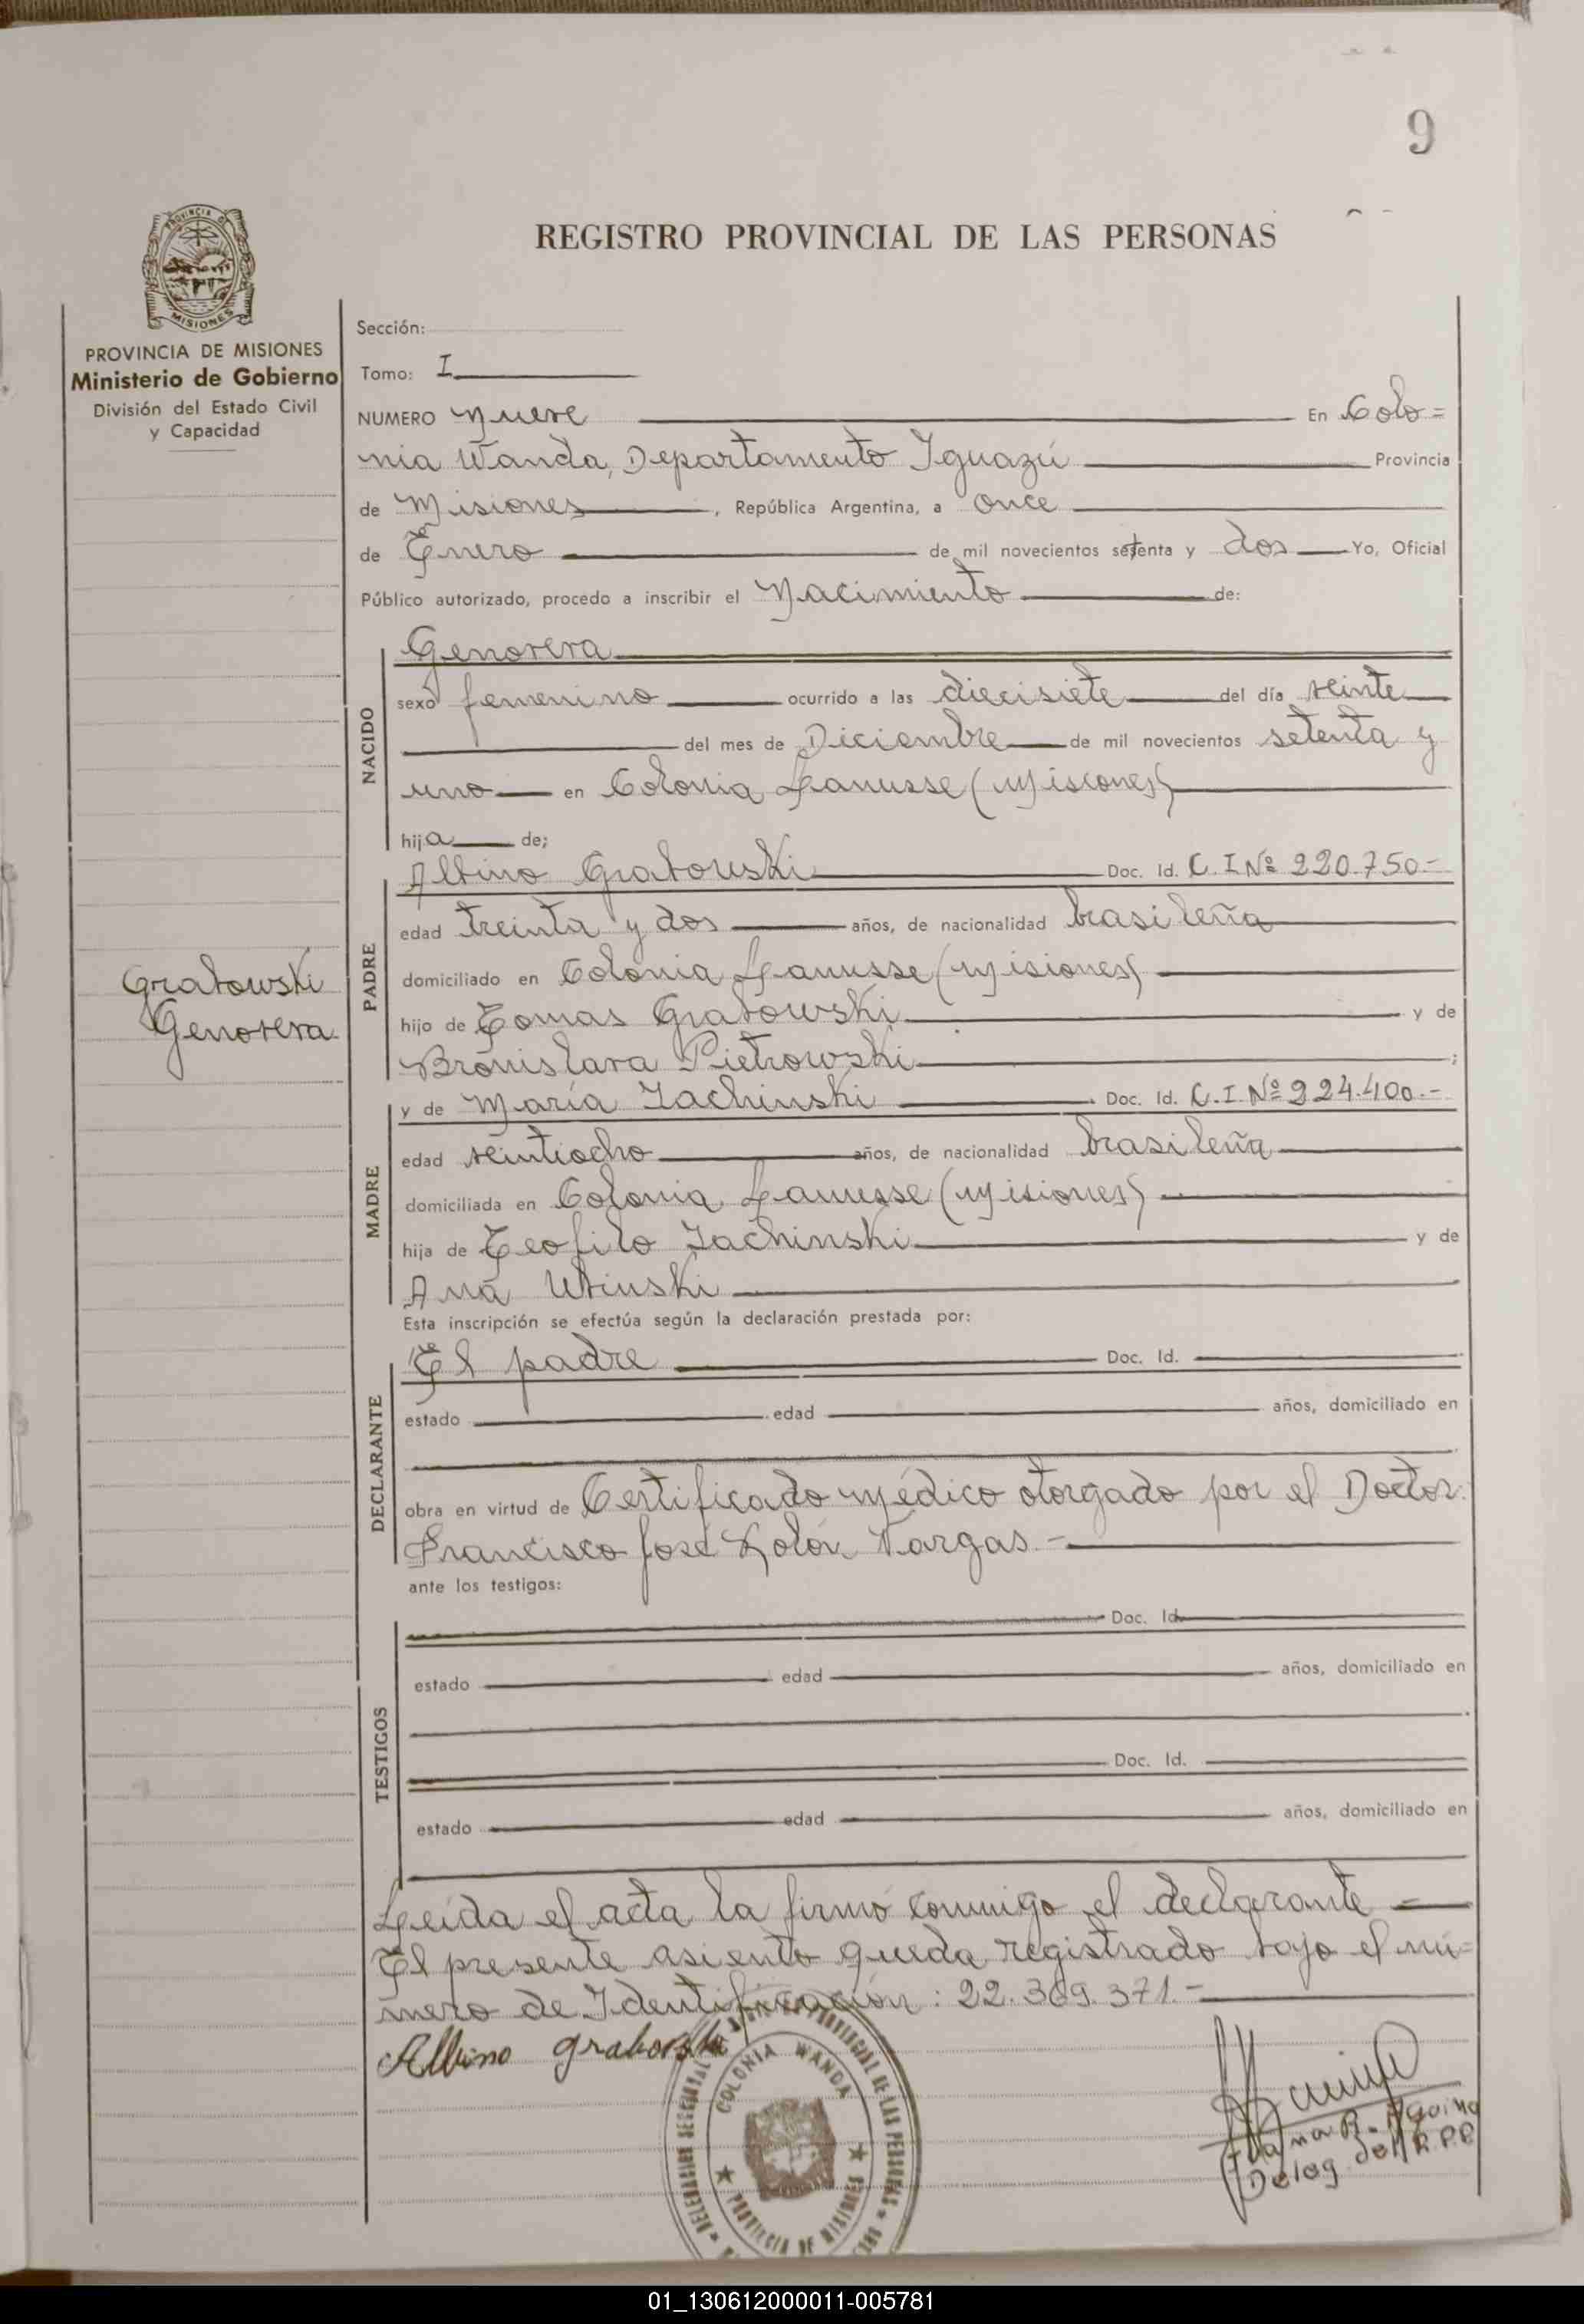 9
REGISTRO PROVINCIAL DE LAS PERSONAS
PROVINCIA DE MISIONES
Ministerio de Gobierno
División del Estado Civil
y Capacidad
Sección:
Tomo: I
NUMERO Nueve En Colo=
nia Wanda, Departamento Iguazú Provincia
de Misiones, República Argentina, a Once
de Enero de mil novecientos setenta y dos Yo, Oficial
Público autorizado, procedo a inscribir el Nacimiento de:
NACIDO
Genoveva
sexo femenino ocurrido a las diecisiete del día veinte
del mes de Diciembre de mil novecientos setenta y
uno en Colonia Lanusse (Misiones)
hija de;
Grabowski
Genoveva
PADRE
Albino Grabowski Doc. Id. C. I Nº 220.750.-
edad treinta y dos años, de nacionalidad brasileña
domiciliado en Colonia Lanusse (Misiones)
hijo de Tomas Grabowski y de
Bronislava Pietrowski ;
MADRE
y de María Jachinski Doc. Id. C. I. Nº 224.400.-
edad veintiocho años, de nacionalidad brasileña
domiciliada en Colonia Lanusse (Misiones)
hija de Teofilo Jachinski y de
Ana
Esta inscripción se efectúa según la declaración prestada por:
DECLARANTE
El padre Doc. Id.
estado edad años, domiciliado en
obra en virtud de Certificado médico otorgado por el Doctor
Francisco José Colón Vargas.-
ante los testigos:
TESTIGOS
Doc. Id.
estado edad años, domiciliado en
Doc. Id.
estado edad años, domiciliado en
Leída el acta la firmó conmigo el declarante =
El presente asiento queda registrado bajo el nú=
mero de Identificación: 22.369.371.-
Albino Grabowski
COLONIA WANDA
PROVINCIA DE MISIONES
Juana R. Aquino
Deleg del R.P.P
01_130612000011-005781